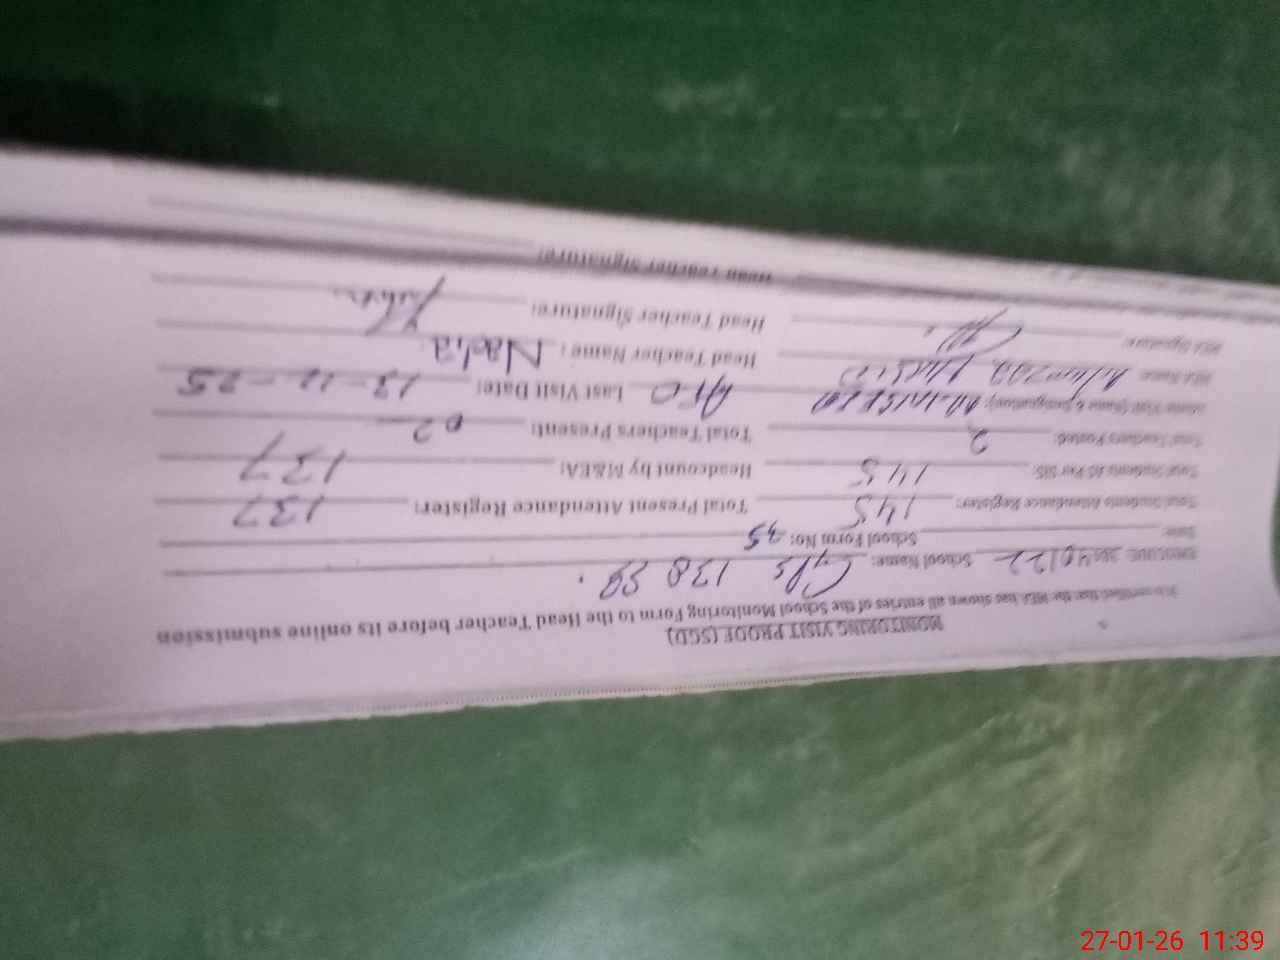 MONITORING VISIT PROOF (SGD)
It is certified that the MEA has shown all entries of the School Monitoring Form to the Head Teacher before its online submission
School Name: GPS 138 SB
Date: School Form No: 35
Total Students Attendance Register: 145 Total Present Attendance Register: 137
Total Students AS Per SIS: 145 Headcount by M&EA: 137
Total Teachers Posted: 2 Total Teachers Present: 02
AEO Last Visit Date: 13-12-25
MEA Name: Head Teacher Name: Nadia
MEA Signature: Head Teacher Signature:
Head Teacher Signature:
27-01-26 11:39